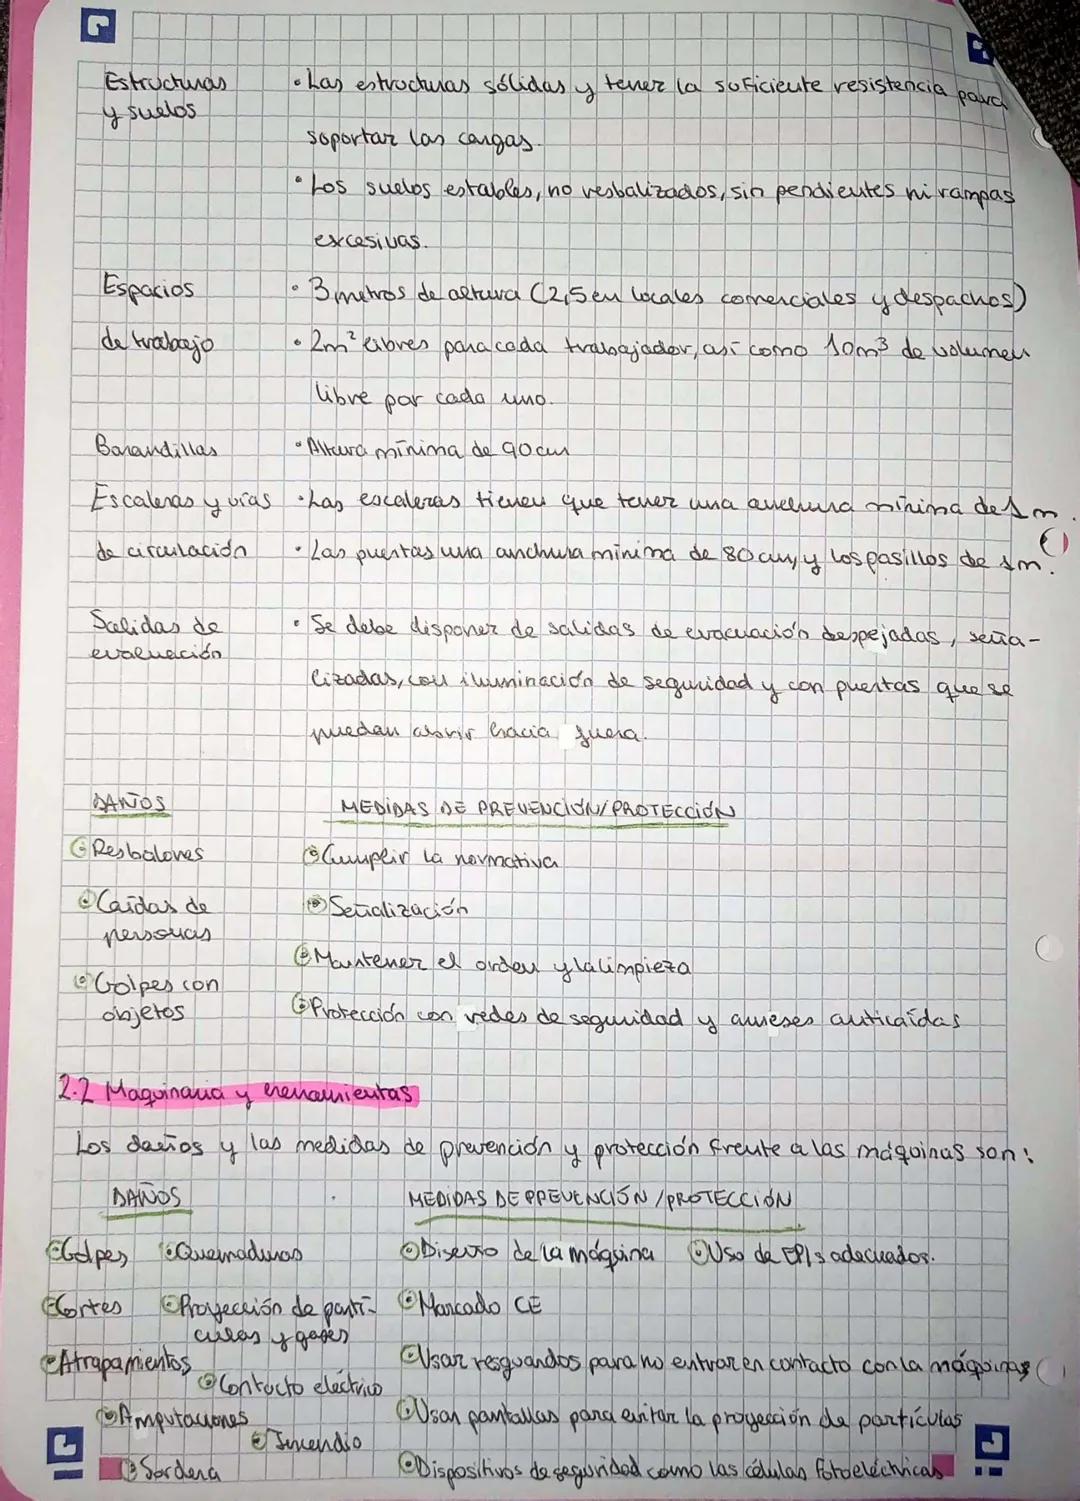 Estructuras • Las estructuras sólidas y tener la suficiente resistencia para
y suelos
soportar las cargas.
• Los suelos estables, no resbalizados, sin pendientes ni rampas
excesivas.
Espacios • 3 metros de altura (2,5 en locales comerciales y despachos)
de trabajo • 2m² libres para cada trabajador, así como 10m³ de volumen
libre por cada uno.
Barandillas • Altura mínima de 90cm
Escaleras y vías • Las escaleras tienen que tener una anchura mínima de 1m.
de circulación • Las puertas una anchura mínima de 80cm, y los pasillos de 1m.
Salidas de • Se debe disponer de salidas de evacuación despejadas, seña-
evacuación
lizadas, con iluminación de seguridad y con puertas que se
puedan abrir hacia fuera.
DAÑOS MEDIDAS DE PREVENCIÓN/PROTECCIÓN
Resbalones Cumplir la normativa
Caídas de Señalización
personas
Mantener el orden y la limpieza
Golpes con
objetos Protección con redes de seguridad y arneses anticaídas
2.2 Maquinaria y herramientas
Los daños y las medidas de prevención y protección frente a las máquinas son:
DAÑOS MEDIDAS DE PREVENCIÓN/PROTECCIÓN
Golpes Quemaduras Diseño de la máquina Uso de EPIs adecuados.
Cortes Proyección de partí- Marcado CE
culas y gases
Atrapamientos Usar resguardos para no entrar en contacto con la máquinas
Contacto eléctrico
Amputaciones Usar pantallas para evitar la proyección de partículas
Incendio
Sordera Dispositivos de seguridad como las células fotoeléctricas